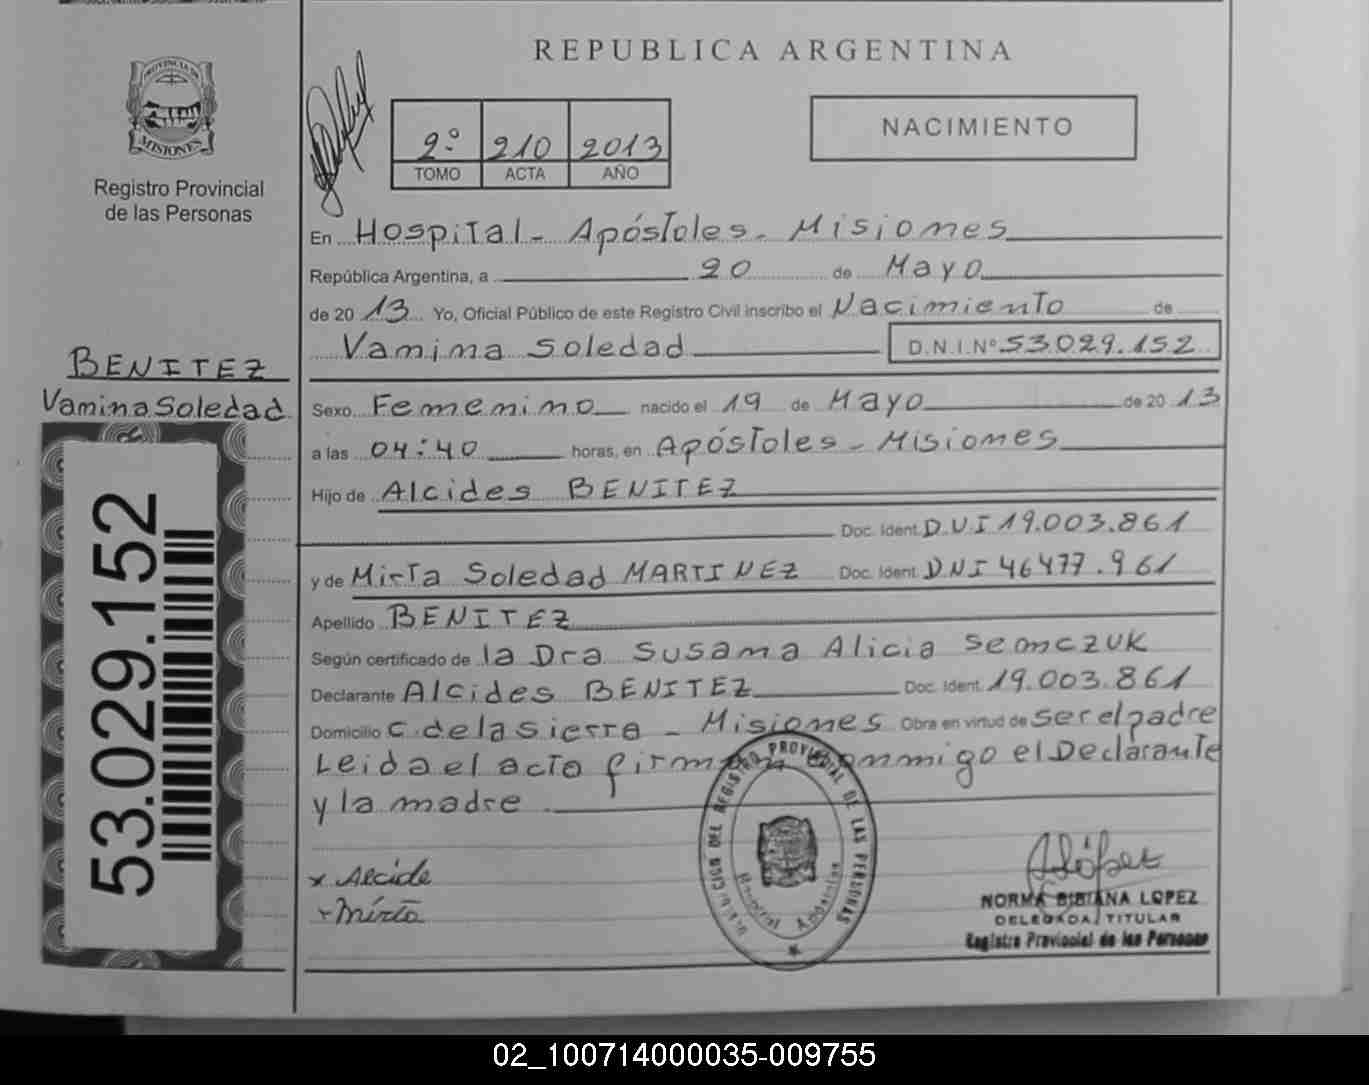 REPUBLICA ARGENTINA
PROVINCIA DE
MISIONES
Registro Provincial
de las Personas
2º 210 2013
TOMO ACTA AÑO
NACIMIENTO
En Hospital - Apóstoles - Misiones
República Argentina, a 20 de Mayo
de 2013 Yo, Oficial Público de este Registro Civil inscribo el Nacimiento de
Vamina Soledad D.N.I.Nº 53.029.152
BENITEZ
Vamina Soledad
Sexo Femenino nacido el 19 de Mayo de 2013
a las 04:40 horas, en Apóstoles - Misiones
Hijo de Alcides BENITEZ
Doc. Ident. D.U.I 19.003.861
y de Mirta Soledad MARTINEZ Doc. Ident. DNI 46477.961
Apellido BENITEZ
Según certificado de la Dra Susana Alicia Semczuk
Declarante Alcides BENITEZ Doc. Ident. 19.003.861
Domicilio C. de la Sierra - Misiones Obra en virtud de ser el padre
Leida el acto firman conmigo el Declarante
y la madre.
53.029.152
DIRECCION DEL REGISTRO PROVINCIAL DE LAS PERSONAS
x Alcide
x Mirta
NORMA BIBIANA LOPEZ
DELEGADA TITULAR
Registro Provincial de las Personas
02_100714000035-009755